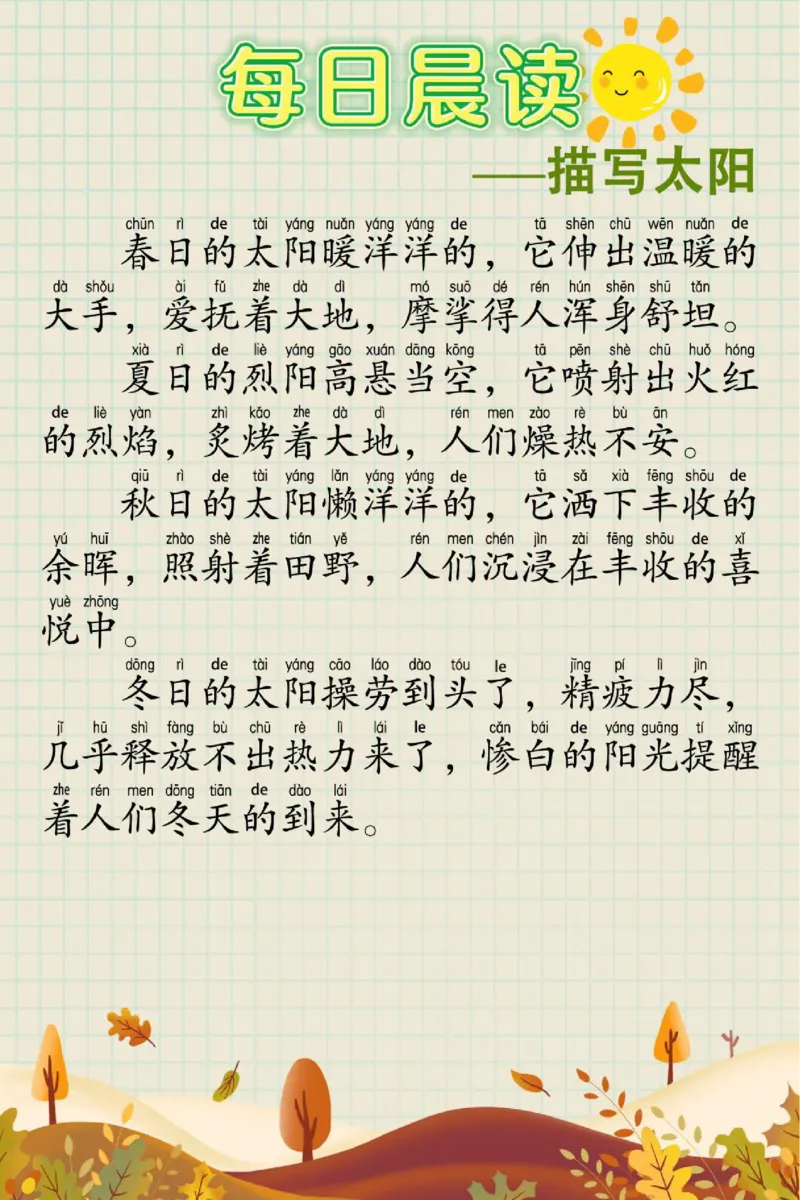 每日晨读
——描写太阳
chūn rì de tài yáng nuǎn yáng yáng de tā shēn chū wēn nuǎn de
春日的太阳暖洋洋的，它伸出温暖的
dà shǒu ài fǔ zhe dà dì mó suō dé rén hún shēn shū tǎn
大手，爱抚着大地，摩挲得人浑身舒坦。
xià rì de liè yáng gāo xuán dāng kōng tā pēn shè chū huǒ hóng
夏日的烈阳高悬当空，它喷射出火红
de liè yàn zhì kǎo zhe dà dì rén men zào rè bù ān
的烈焰，炙烤着大地，人们燥热不安。
qiū rì de tài yáng lǎn yáng yáng de tā sǎ xià fēng shōu de
秋日的太阳懒洋洋的，它洒下丰收的
yú huī zhào shè zhe tián yě rén men chén jìn zài fēng shōu de xǐ
余晖，照射着田野，人们沉浸在丰收的喜
yuè zhōng
悦中。
dōng rì de tài yáng cāo láo dào tóu le jīng pí lì jìn
冬日的太阳操劳到头了，精疲力尽，
jǐ hū shì fàng bù chū rè lì lái le cǎn bái de yáng guāng tí xǐng
几乎释放不出热力来了，惨白的阳光提醒
zhe rén men dōng tiān de dào lái
着人们冬天的到来。